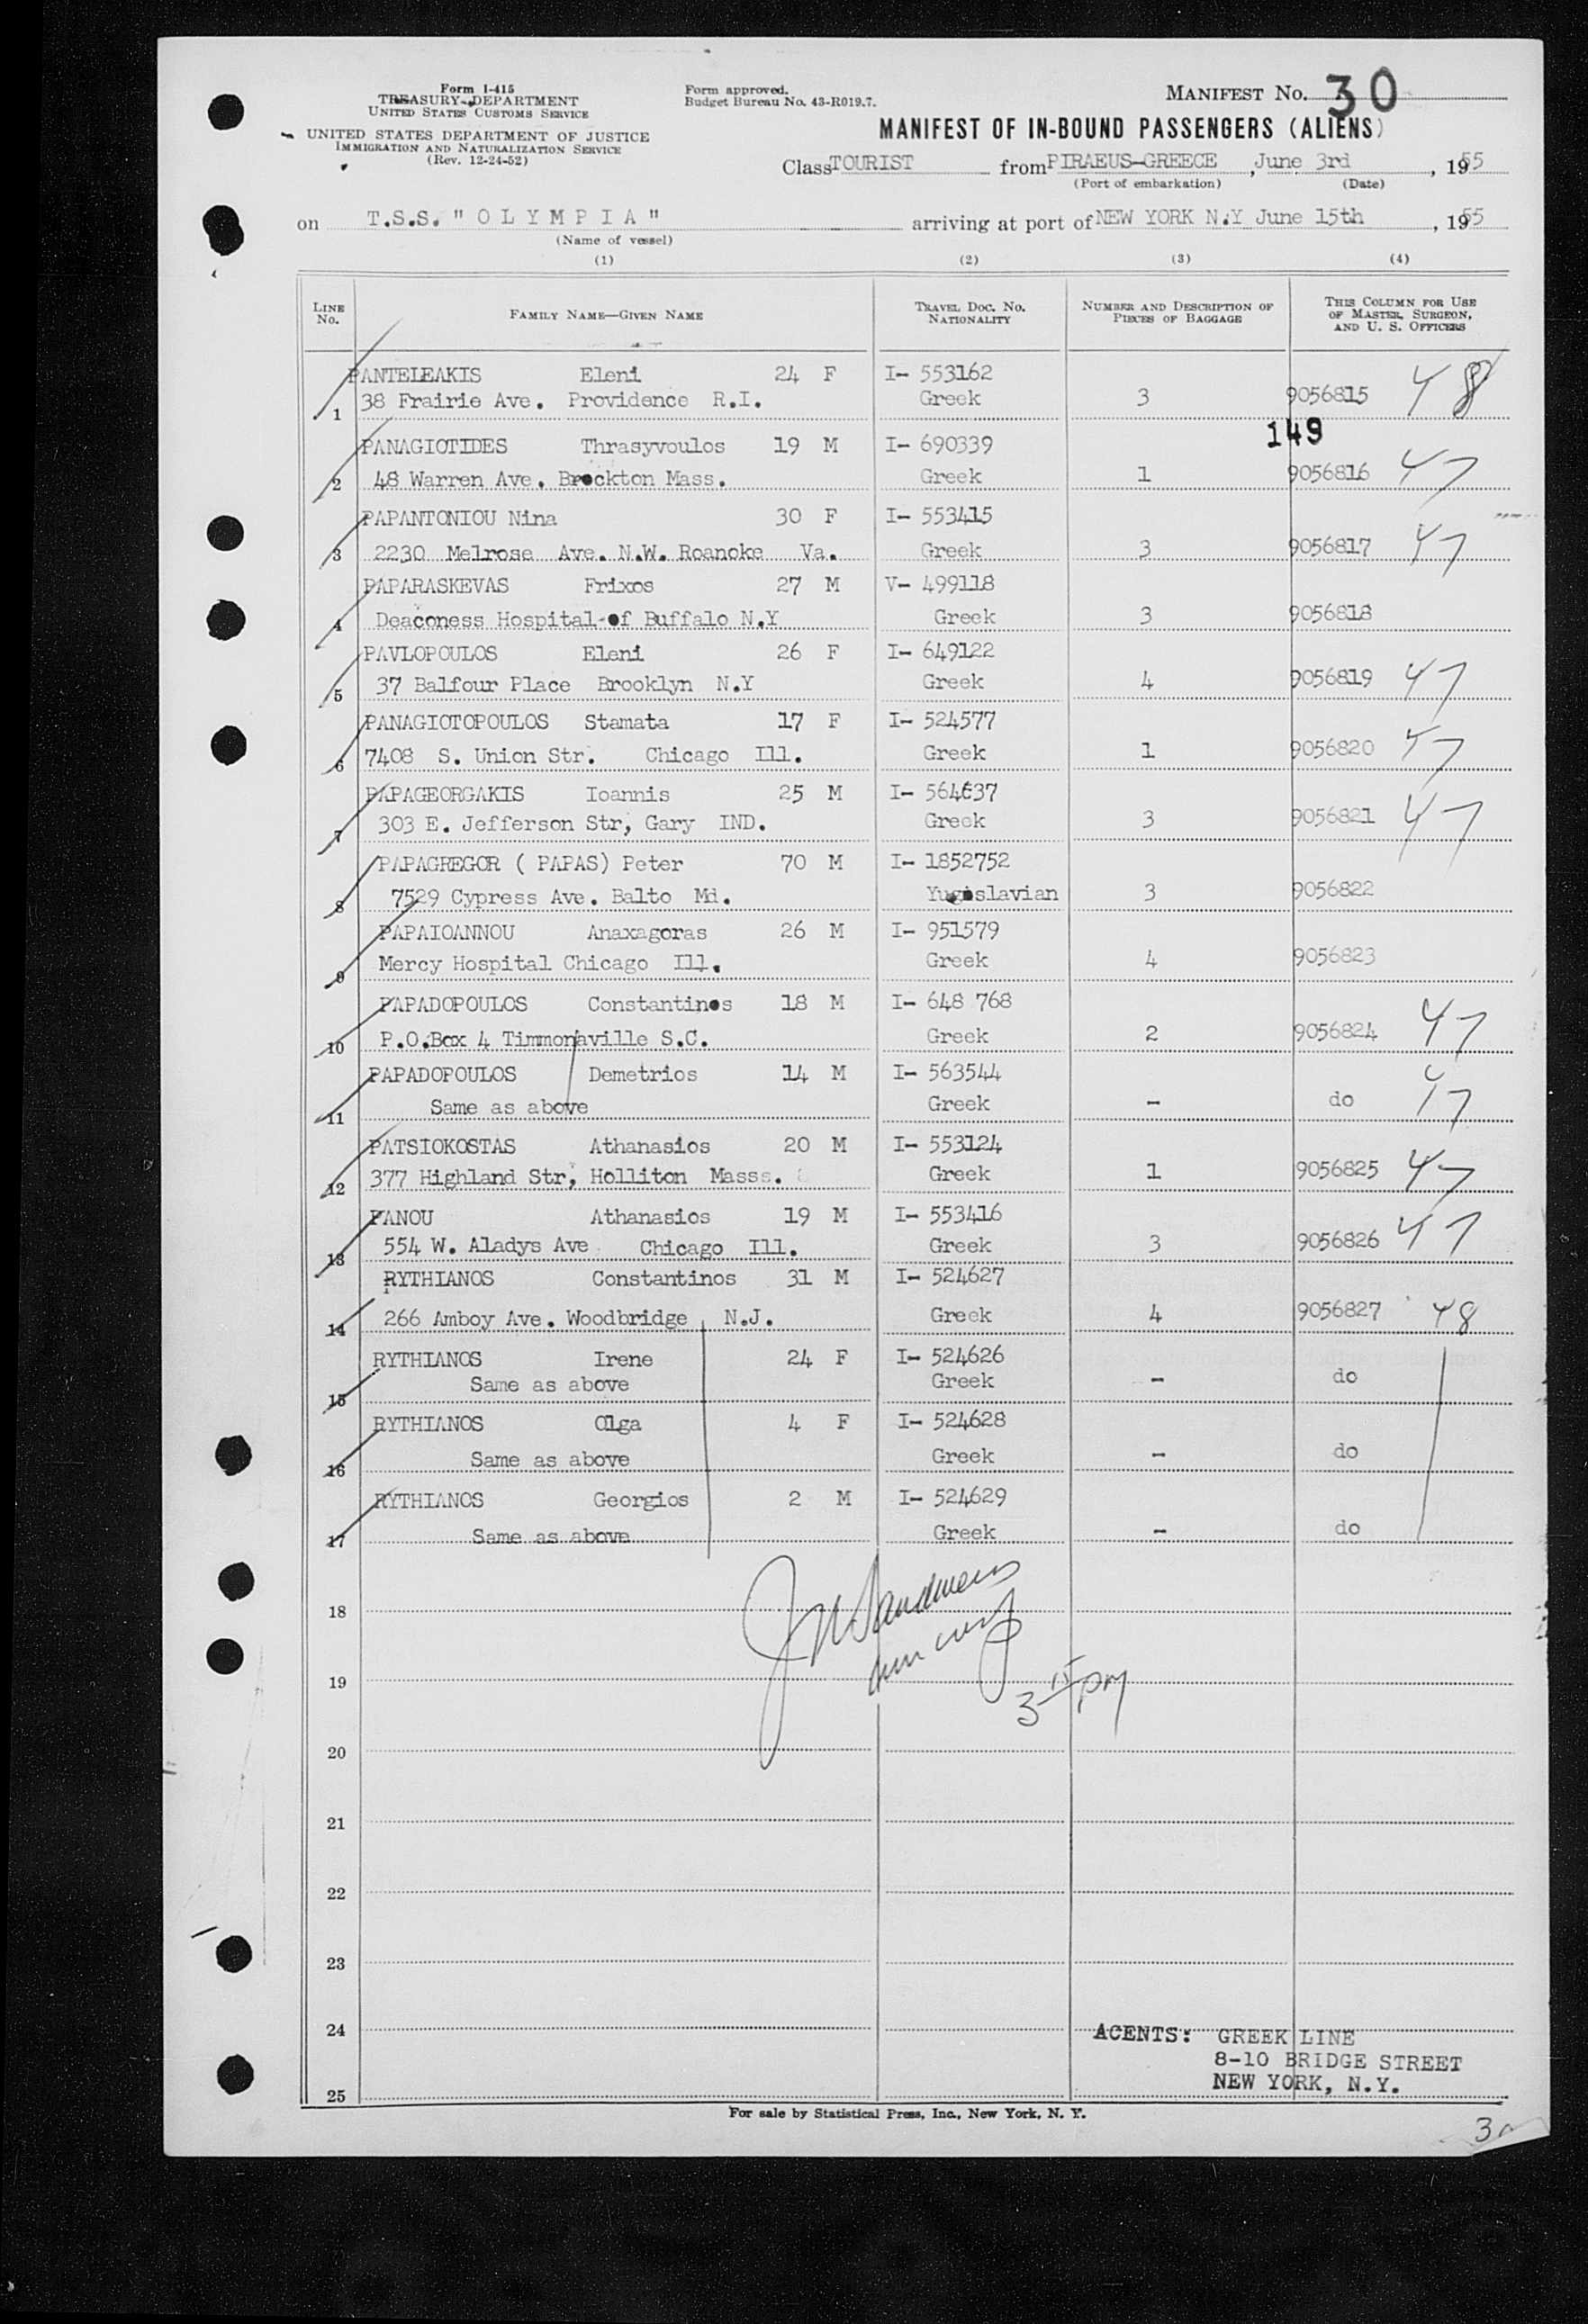 Form I-415
TREASURY DEPARTMENT
UNITED STATES CUSTOMS SERVICE
UNITED STATES DEPARTMENT OF JUSTICE
IMMIGRATION AND NATURALIZATION SERVICE
(Rev. 12-24-52)
Form approved.
Budget Bureau No. 43-R019.7.
MANIFEST No. 30
MANIFEST OF IN-BOUND PASSENGERS (ALIENS)
Class TOURIST from PIRAEUS-GREECE, June 3rd, 1955
(Port of embarkation) (Date)
on T.S.S. " O L Y M P I A " arriving at port of NEW YORK N.Y June 15th, 1955
(Name of vessel)
(1) (2) (3) (4)
LINE No. FAMILY NAME—GIVEN NAME TRAVEL DOC. NO. NATIONALITY NUMBER AND DESCRIPTION OF PIECES OF BAGGAGE THIS COLUMN FOR USE OF MASTER, SURGEON, AND U. S. OFFICERS
PANTELEAKIS Eleni 24 F I- 553162
1 38 Frairie Ave. Providence R.I. Greek 3 9056815 48
149
PANAGIOTIDES Thrasyvoulos 19 M I- 690339
2 48 Warren Ave. Brockton Mass. Greek 1 9056816 47
PAPANTONIOU Nina 30 F I- 553415
3 2230 Melrose Ave. N.W. Roanoke Va. Greek 3 9056817 47
PAPARASKEVAS Frixos 27 M V- 499118
4 Deaconess Hospital-of Buffalo N.Y Greek 3 9056818
PAVLOPOULOS Eleni 26 F I- 649122
5 37 Balfour Place Brooklyn N.Y Greek 4 9056819 47
PANAGIOTOPOULOS Stamata 17 F I- 524577
6 7408 S. Union Str. Chicago Ill. Greek 1 9056820 47
PAPAGEORGAKIS Ioannis 25 M I- 564637
7 303 E. Jefferson Str, Gary IND. Greek 3 9056821 47
PAPAGREGOR ( PAPAS) Peter 70 M I- 1852752
8 7529 Cypress Ave. Balto Md. Yugoslavian 3 9056822
PAPAIOANNOU Anaxagoras 26 M I- 951579
9 Mercy Hospital Chicago Ill. Greek 4 9056823
PAPADOPOULOS Constantinos 18 M I- 648 768
10 P.O.Box 4 Timmonaville S.C. Greek 2 9056824 47
PAPADOPOULOS Demetrios 14 M I- 563544
11 Same as above Greek - do 47
PATSIOKOSTAS Athanasios 20 M I- 553124
12 377 Highland Str, Holliton Masss. Greek 1 9056825 47
PANOU Athanasios 19 M I- 553416
13 554 W. Aladys Ave Chicago Ill. Greek 3 9056826 47
RYTHIANOS Constantinos 31 M I- 524627
14 266 Amboy Ave. Woodbridge N.J. Greek 4 9056827 48
RYTHIANOS Irene 24 F I- 524626
15 Same as above Greek - do
RYTHIANOS Olga 4 F I- 524628
16 Same as above Greek - do
RYTHIANOS Georgios 2 M I- 524629
17 Same as above Greek - do
18
19
3 15 PM
20
21
22
23
24
ACENTS: GREEK LINE
8-10 BRIDGE STREET
NEW YORK, N.Y.
25
For sale by Statistical Press, Inc., New York, N. Y.